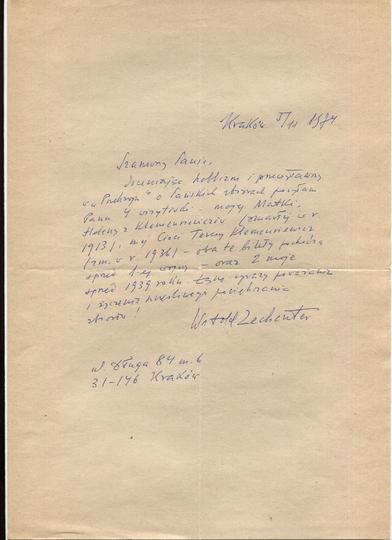 Kraków 5/11 1974
Szanowny Panie,
Doceniając hobbizm i przeczytawszy
w „Przekroju" o Pańskich zbiorach posyłam
Panu 4 wizytówki mojej Matki,
Heleny z Klemensiewiczów (zmarłej w r.
1913), mej Cioci Teresy Klemensiewicz
(zm. w r. 1936) – oba te bilety pochodzą
sprzed I-ej wojny – oraz 2 moje
sprzed 1939 roku. Łączę wyrazy poważania
i życzenia pomyślnego powiększania
zbiorów!
Witold Zechenter
ul Długa 84 m. 6
31-146 Kraków